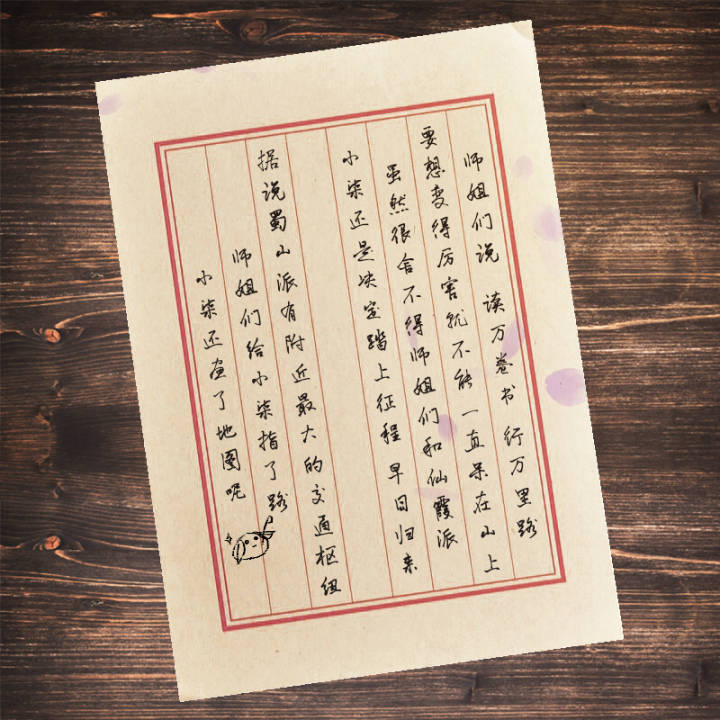 师姐们说 读万卷书 行万里路
要想变得厉害就不能一直呆在山上
虽然很舍不得师姐们和仙霞派
小柒还是决定踏上征程 早日归来
据说蜀山派有附近最大的交通枢纽
师姐们给小柒指了路
小柒还画了地图呢